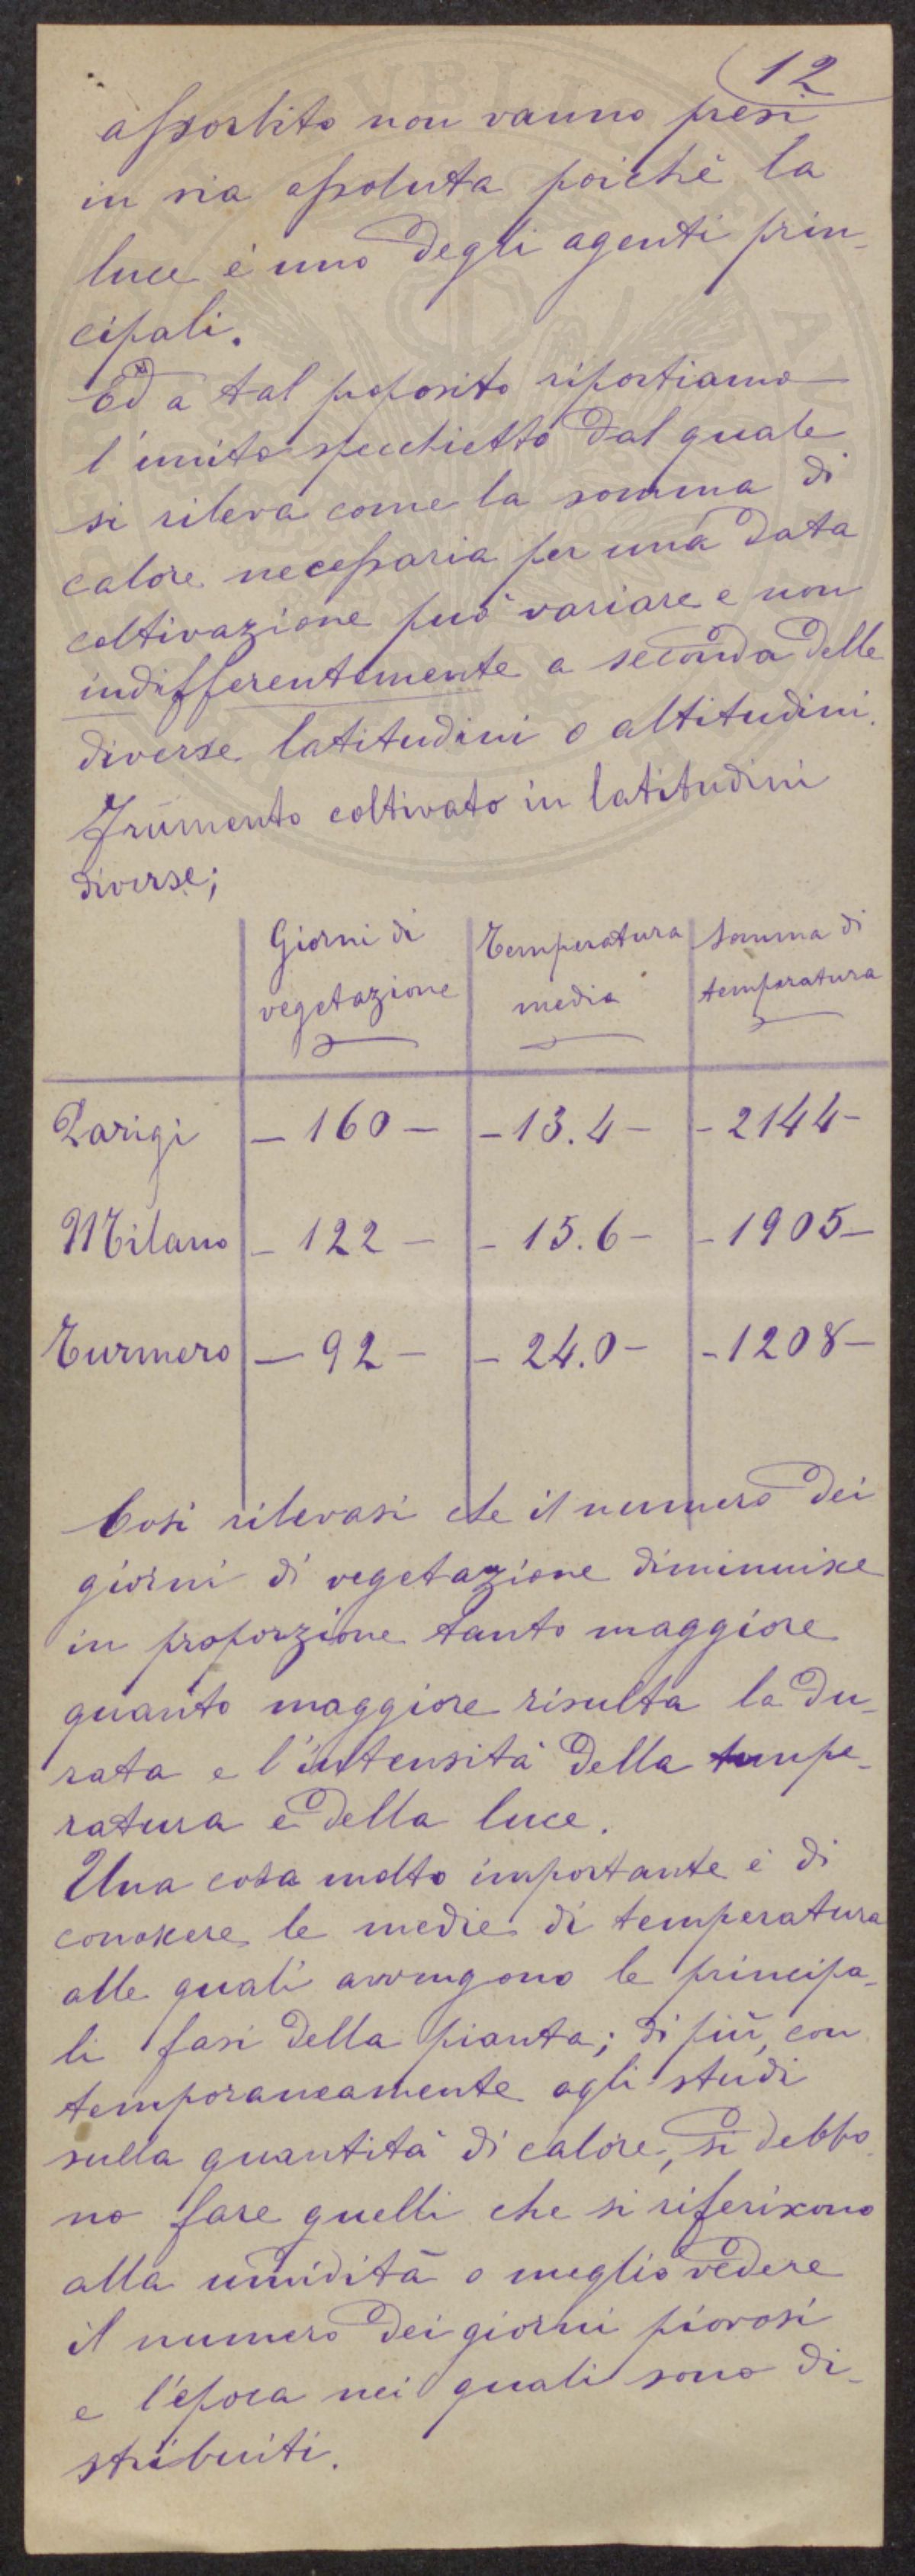 12
assorbito non vanno presi
in via assoluta poichè la
luce è uno degli agenti prin-
cipali.
Ed a tal proposito riportiamo
l'unito specchietto dal quale
si rileva come la somma di
calore necessaria per una data
coltivazione può variare e non
indifferentemente a seconda delle
diverse latitudini o altitudini.
Frumento coltivato in latitudini
diverse;
Giorni di vegetazione | Temperatura media | Somma di temperatura
Parigi | - 160 - | - 13.4 - | - 2144 -
Milano | - 122 - | - 15.6 - | - 1905 -
Turmero | - 92 - | - 24.0 - | - 1208 -
Così rilevasi che il numero dei
giorni di vegetazione diminuisce
in proporzione tanto maggiore
quanto maggiore risulta la du-
rata e l'intensità della tempe-
ratura e della luce.
Una cosa molto importante è di
conoscere le medie di temperatura
alle quali avvengono le principa-
li fasi della pianta; di più, con
temporaneamente agli studi
sulla quantità di calore, si debbo
no fare quelli che si riferiscono
alla umidità o meglio vedere
il numero dei giorni piovosi
e l'epoca nei quali sono di-
stribuiti.